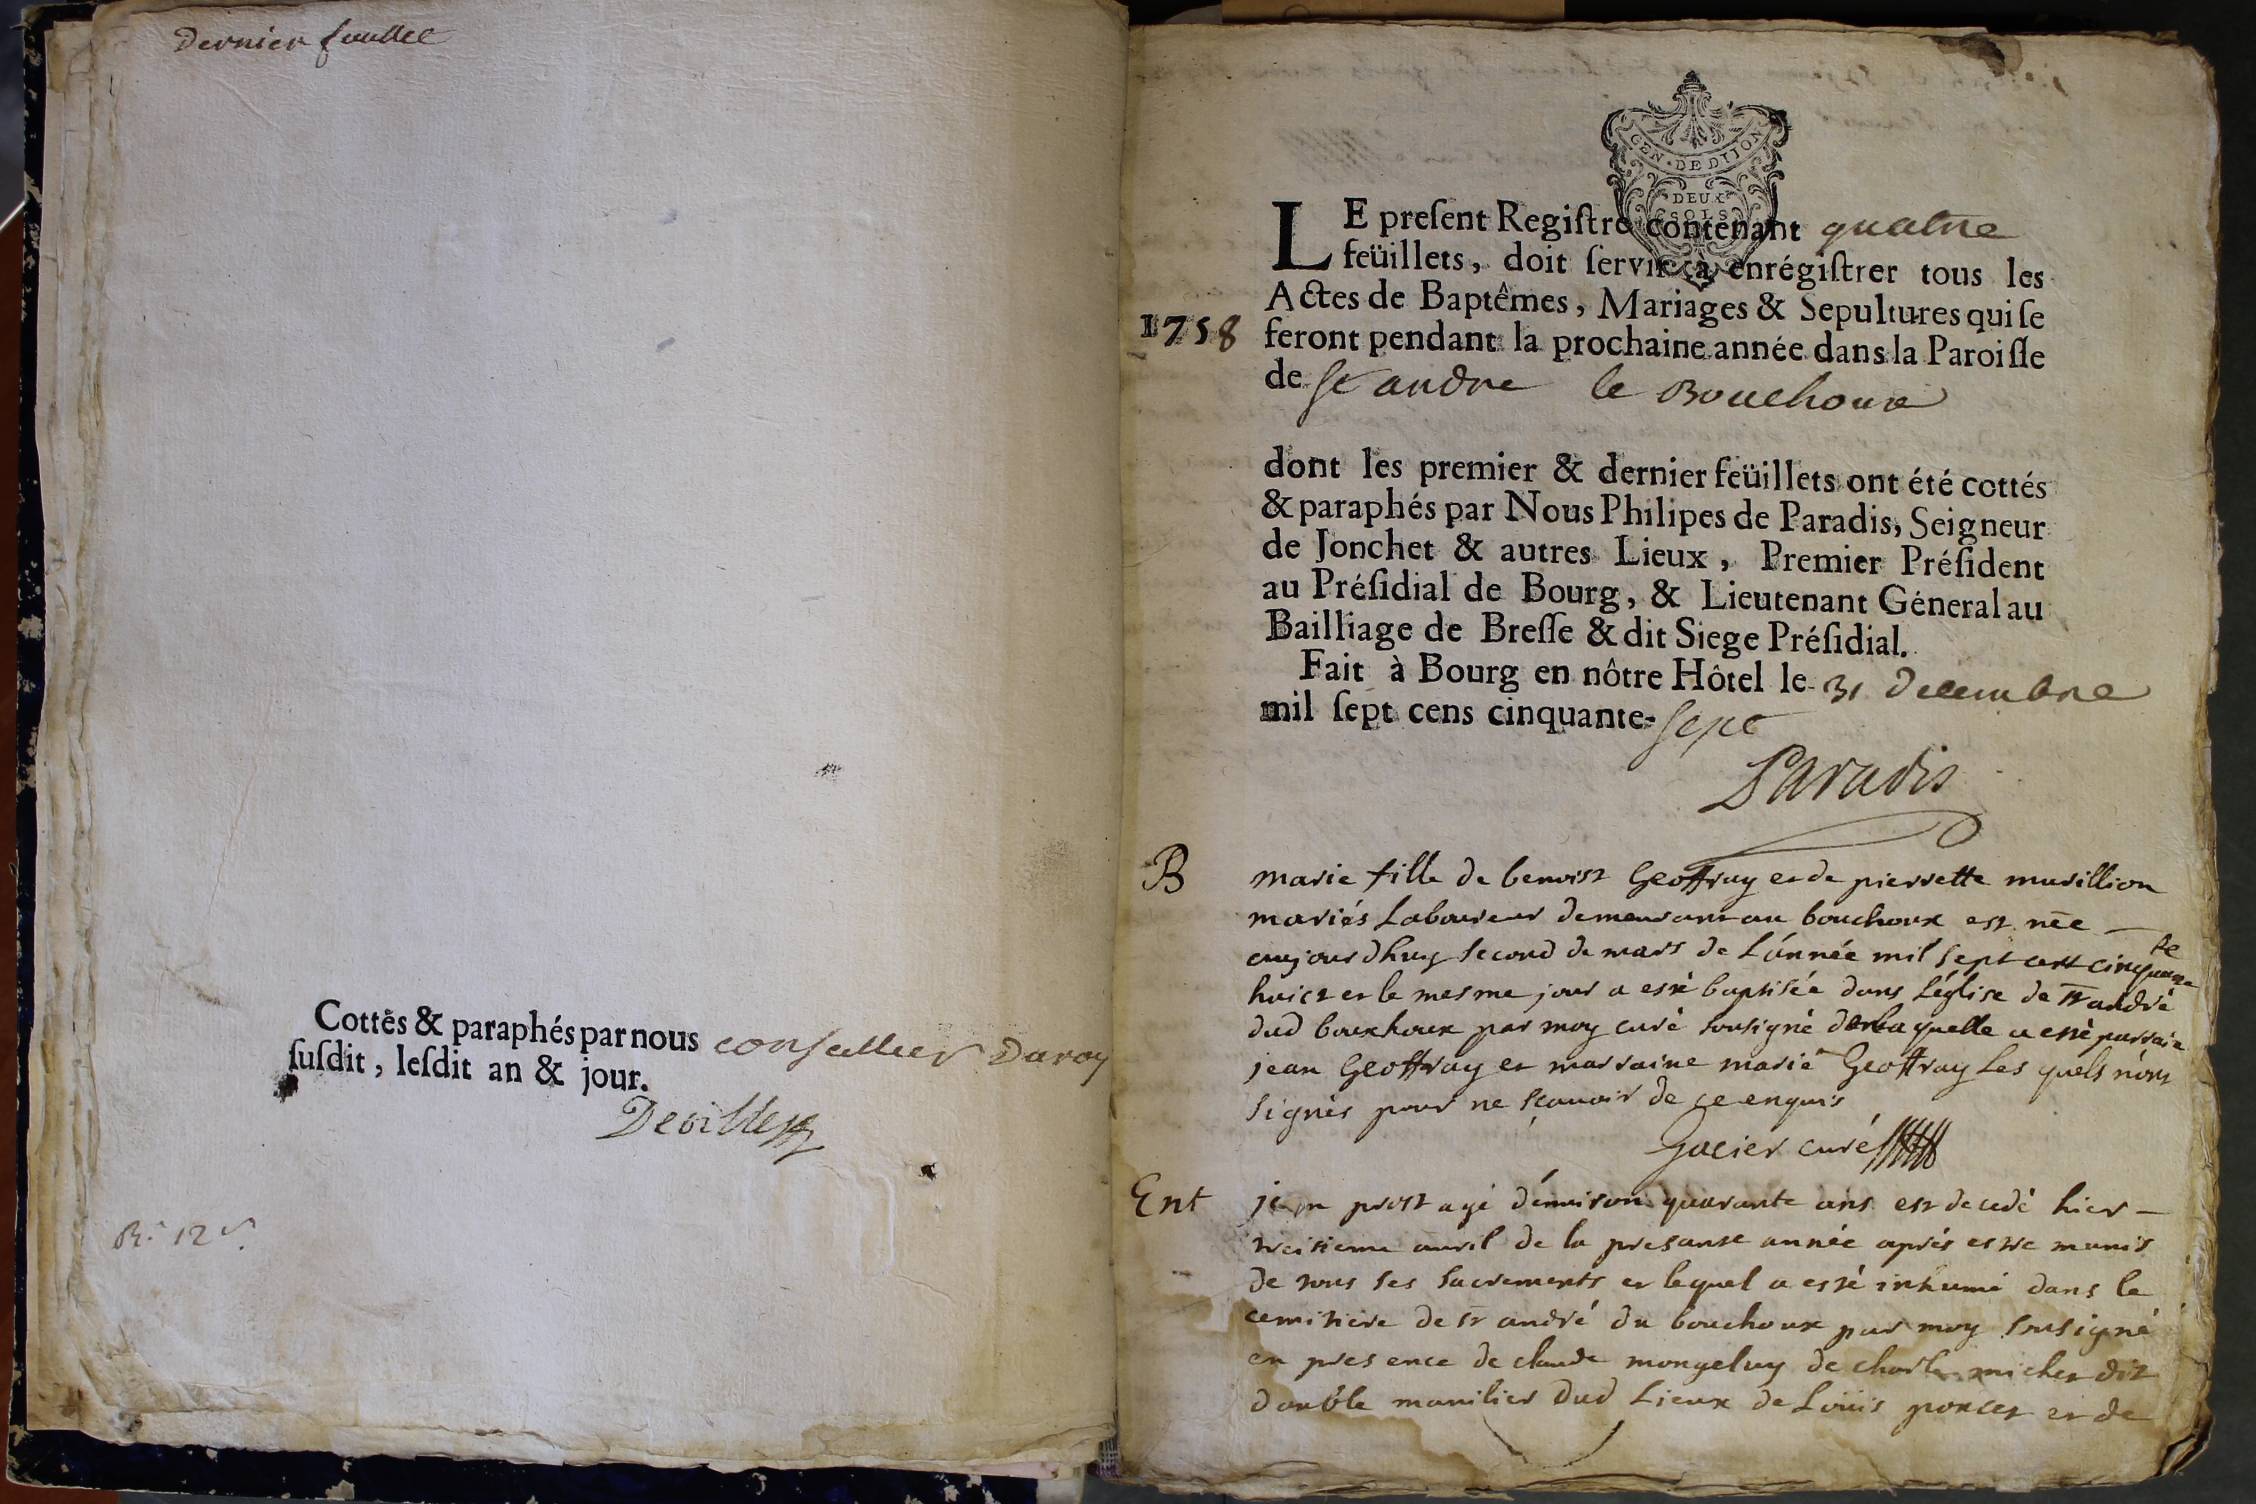 Dernier feuillet
Cottés & paraphés par nous conseiller Du roy
susdit, lesdit an & jour.
Deville
R. 12 s.
GEN · DE DIJON
DEUX
SOLS
LE present Registre contenant quatre
feüillets, doit servir à enrégistrer tous les
Actes de Baptêmes, Mariages & Sepultures qui se
1758
feront pendant la prochaine année dans la Paroisse
de St andre le Bouchoux
dont les premier & dernier feüillets ont été cottés
& paraphés par Nous Philipes de Paradis, Seigneur
de Jonchet & autres Lieux, Premier Président
au Présidial de Bourg, & Lieutenant Géneral au
Bailliage de Bresse & dit Siege Présidial.
Fait à Bourg en nôtre Hôtel le 31 decembre
mil sept cens cinquante-sept
Paradis
B
marie fille de benoist Geoffray et de pierrette murillion
mariés Laboureur demeurant au bouchoux est née
aujourdhuy second de mars de L'année mil sept cent cinquante
huict et le mesme jour a esté baptisée dans L'église de st andré
dud bouxhoux par moy curé sousigné de laquelle a esté parrain
jean Geoffray et marraine marie Geoffray Les quels n'ont
signés pour ne sçauoir de ce enquis
Gacier curé
Ent
jean prost agé d'enuiron quarante ans est decedé hier
treisieme auril de la presante année aprés estre munis
de tous ses sacrements et lequel a esté inhumé dans le
cemitiere de st andré du bouchoux par moy sousigné
en presence de claude mongeluy de charle michet dit
double manilier dud Lieux de Loüis poncet et de